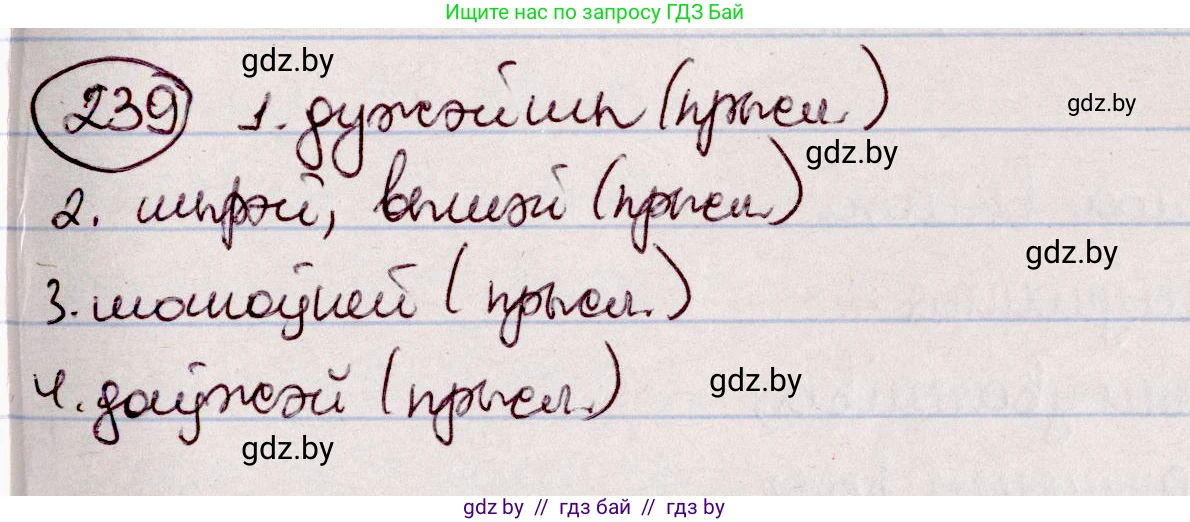 Ищите нас по запросу ГДЗ Бай
gdz.by
239 1. дужэйшы (прысл.) gdz.by
gdz.by
2. шырэй, вышэй (прысл.)
gdz.by
3. шматоўней (прысл.)
4. даўжэй (прысл.) gdz.by
gdz.by
gdz by // гдз бай // гдз by